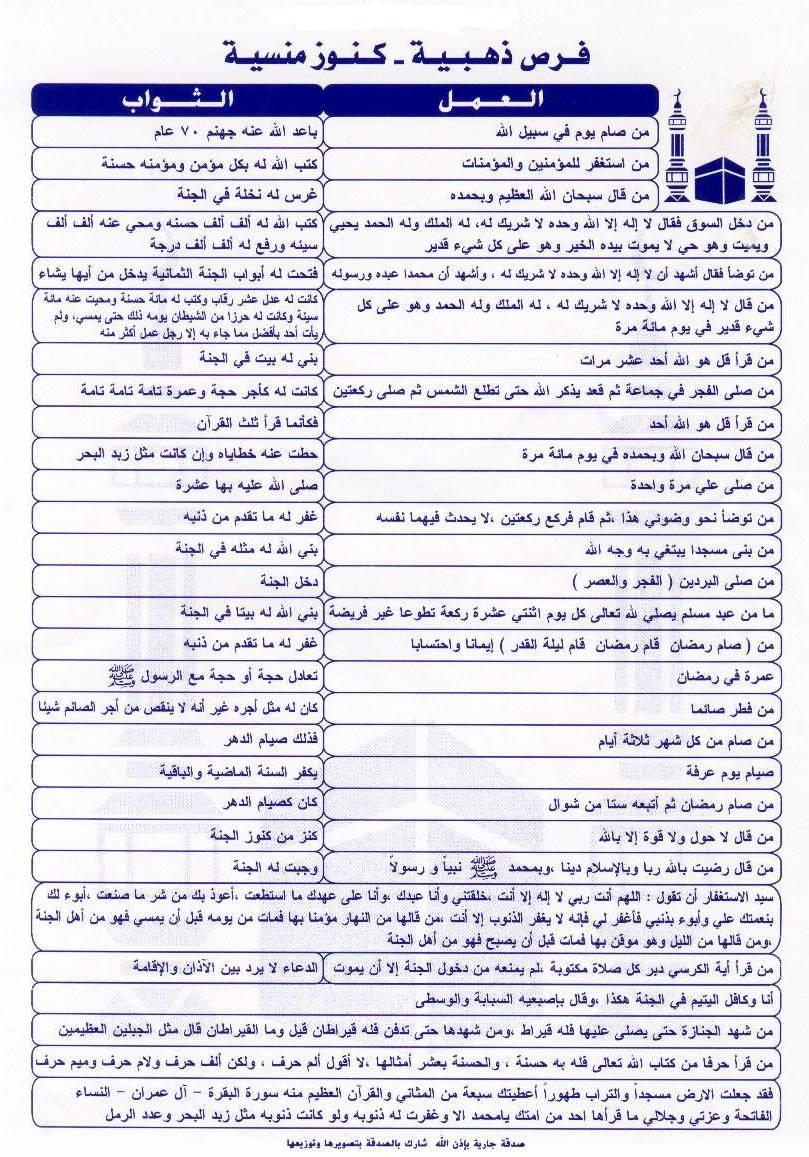 فرص ذهبية ـ كنوز منسية
العمل	الثواب
من صام يوم في سبيل الله	باعد الله عنه جهنم ٧٠ عام
من استغفر للمؤمنين والمؤمنات	كتب الله له بكل مؤمن ومؤمنه حسنة
من قال سبحان الله العظيم وبحمده	غرس له نخلة في الجنة
من دخل السوق فقال لا إله إلا الله وحده لا شريك له، له الملك وله الحمد يحيي	كتب الله له ألف ألف حسنه ومحي عنه ألف ألف
ويميت وهو حي لا يموت بيده الخير وهو على كل شيء قدير	سيئه ورفع له ألف ألف درجة
من توضأ فقال أشهد أن لا إله إلا الله وحده لا شريك له ، وأشهد أن محمدا عبده ورسوله	فتحت له أبواب الجنة الثمانية يدخل من أيها يشاء
من قال لا إله إلا الله وحده لا شريك له ، له الملك وله الحمد وهو على كل
شيء قدير في يوم مائة مرة
كانت له عدل عشر رقاب وكتب له مائة حسنة ومحيت عنه مائة
سيئة وكانت له حرزا من الشيطان يومه ذلك حتى يمسي، ولم
يأت أحد بأفضل مما جاء به إلا رجل عمل أكثر منه
من قرأ قل هو الله أحد عشر مرات	بني له بيت في الجنة
من صلى الفجر في جماعة ثم قعد يذكر الله حتى تطلع الشمس ثم صلى ركعتين	كانت له كأجر حجة وعمرة تامة تامة تامة
من قرأ قل هو الله أحد	فكأنما قرأ ثلث القرآن
من قال سبحان الله وبحمده في يوم مائة مرة	حطت عنه خطاياه وإن كانت مثل زبد البحر
من صلى علي مرة واحدة	صلى الله عليه بها عشرة
من توضأ نحو وضوئي هذا ،ثم قام فركع ركعتين ،لا يحدث فيهما نفسه	غفر له ما تقدم من ذنبه
من بنى مسجدا يبتغي به وجه الله	بني الله له مثله في الجنة
من صلى البردين ( الفجر والعصر )	دخل الجنة
ما من عبد مسلم يصلي لله تعالى كل يوم اثنتي عشرة ركعة تطوعا غير فريضة	بني الله له بيتا في الجنة
من ( صام رمضان قام رمضان قام ليلة القدر ) إيمانا واحتسابا	غفر له ما تقدم من ذنبه
عمرة في رمضان	تعادل حجة أو حجة مع الرسول ﷺ
من فطر صائما	كان له مثل أجره غير أنه لا ينقص من أجر الصائم شيئا
من صام من كل شهر ثلاثة أيام	فذلك صيام الدهر
صيام يوم عرفة	يكفر السنة الماضية والباقية
من صام رمضان ثم أتبعه ستا من شوال	كان كصيام الدهر
من قال لا حول ولا قوة إلا بالله	كنز من كنوز الجنة
من قال رضيت بالله ربا وبالإسلام دينا ،وبمحمد ﷺ نبياً و رسولاً	وجبت له الجنة
سيد الاستغفار أن تقول : اللهم أنت ربي لا إله إلا أنت ،خلقتني وأنا عبدك ،وأنا على عهدك ما استطعت ،أعوذ بك من شر ما صنعت ،أبوء لك
بنعمتك علي وأبوء بذنبي فأغفر لي فإنه لا يغفر الذنوب إلا أنت ،من قالها من النهار مؤمنا بها فمات من يومه قبل أن يمسي فهو من أهل الجنة
،ومن قالها من الليل وهو موقن بها فمات قبل أن يصبح فهو من أهل الجنة
من قرأ أية الكرسي دبر كل صلاة مكتوبة ،لم يمنعه من دخول الجنة إلا أن يموت	الدعاء لا يرد بين الآذان والإقامة
أنا وكافل اليتيم في الجنة هكذا ،وقال بإصبعيه السبابة والوسطى
من شهد الجنازة حتى يصلى عليها فله قيراط ،ومن شهدها حتى تدفن فله قيراطان قيل وما القيراطان قال مثل الجبلين العظيمين
من قرأ حرفا من كتاب الله تعالى فله به حسنة ، والحسنة بعشر أمثالها ،لا أقول ألم حرف ، ولكن ألف حرف ولام حرف وميم حرف
فقد جعلت الارض مسجداً والتراب طهوراً أعطيتك سبعة من المثاني والقرآن العظيم منه سورة البقرة – آل عمران – النساء
الفاتحة وعزتي وجلالي ما قرأها احد من امتك يامحمد الا وغفرت له ذنوبه ولو كانت ذنوبه مثل زبد البحر وعدد الرمل
صدقة جارية بإذن الله شارك بالصدقة بتصويرها وتوزيعها